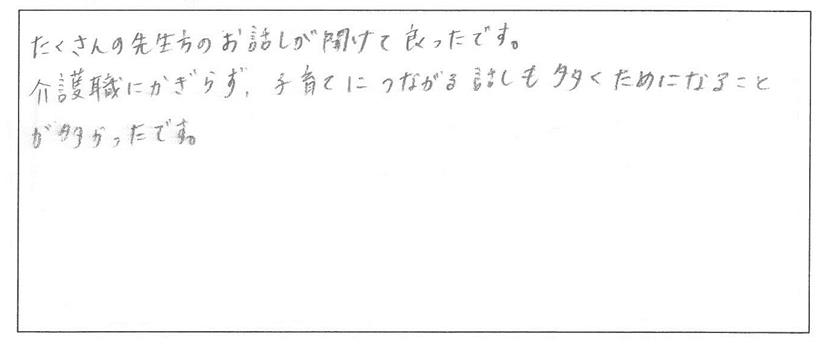 たくさんの先生方のお話しが聞けて良ったです。
介護職にかぎらず、子育てにつながる話しも多くためになること
が多かったです。